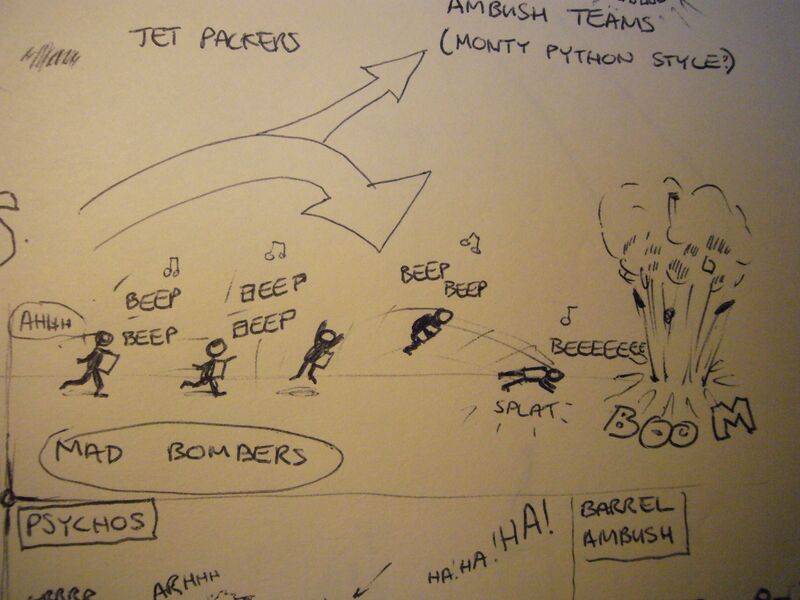 JET PACKERS
AMBUSH TEAMS
(MONTY PYTHON STYLE?)
AHHH
BEEP
BEEP
BEEP
BEEP
BEEP
BEEP
BEEEEEEE
SPLAT
BOOM
MAD BOMBERS
PSYCHOS
BARREL
AMBUSH
ARHHH
HA! HA! HA!